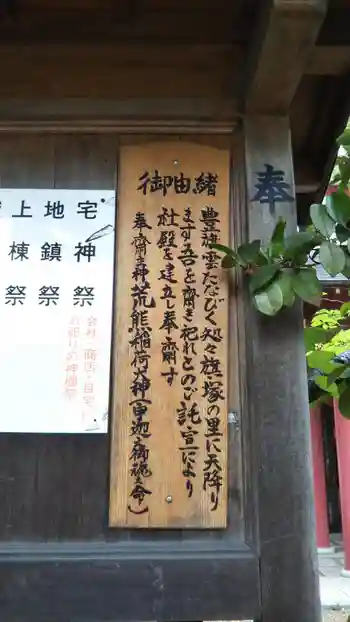 奉
御由緒
豊旗雲たなびく処々旗塚の里に天降り
ます吾を齋き祀れとのご託宣により
社殿を建立し奉齋す
奉齋主神荒熊稲荷大神(宇迦御魂之命)
宅神祭
地鎮祭
上棟祭
会社・商店・自宅
お祀りの神棚祭